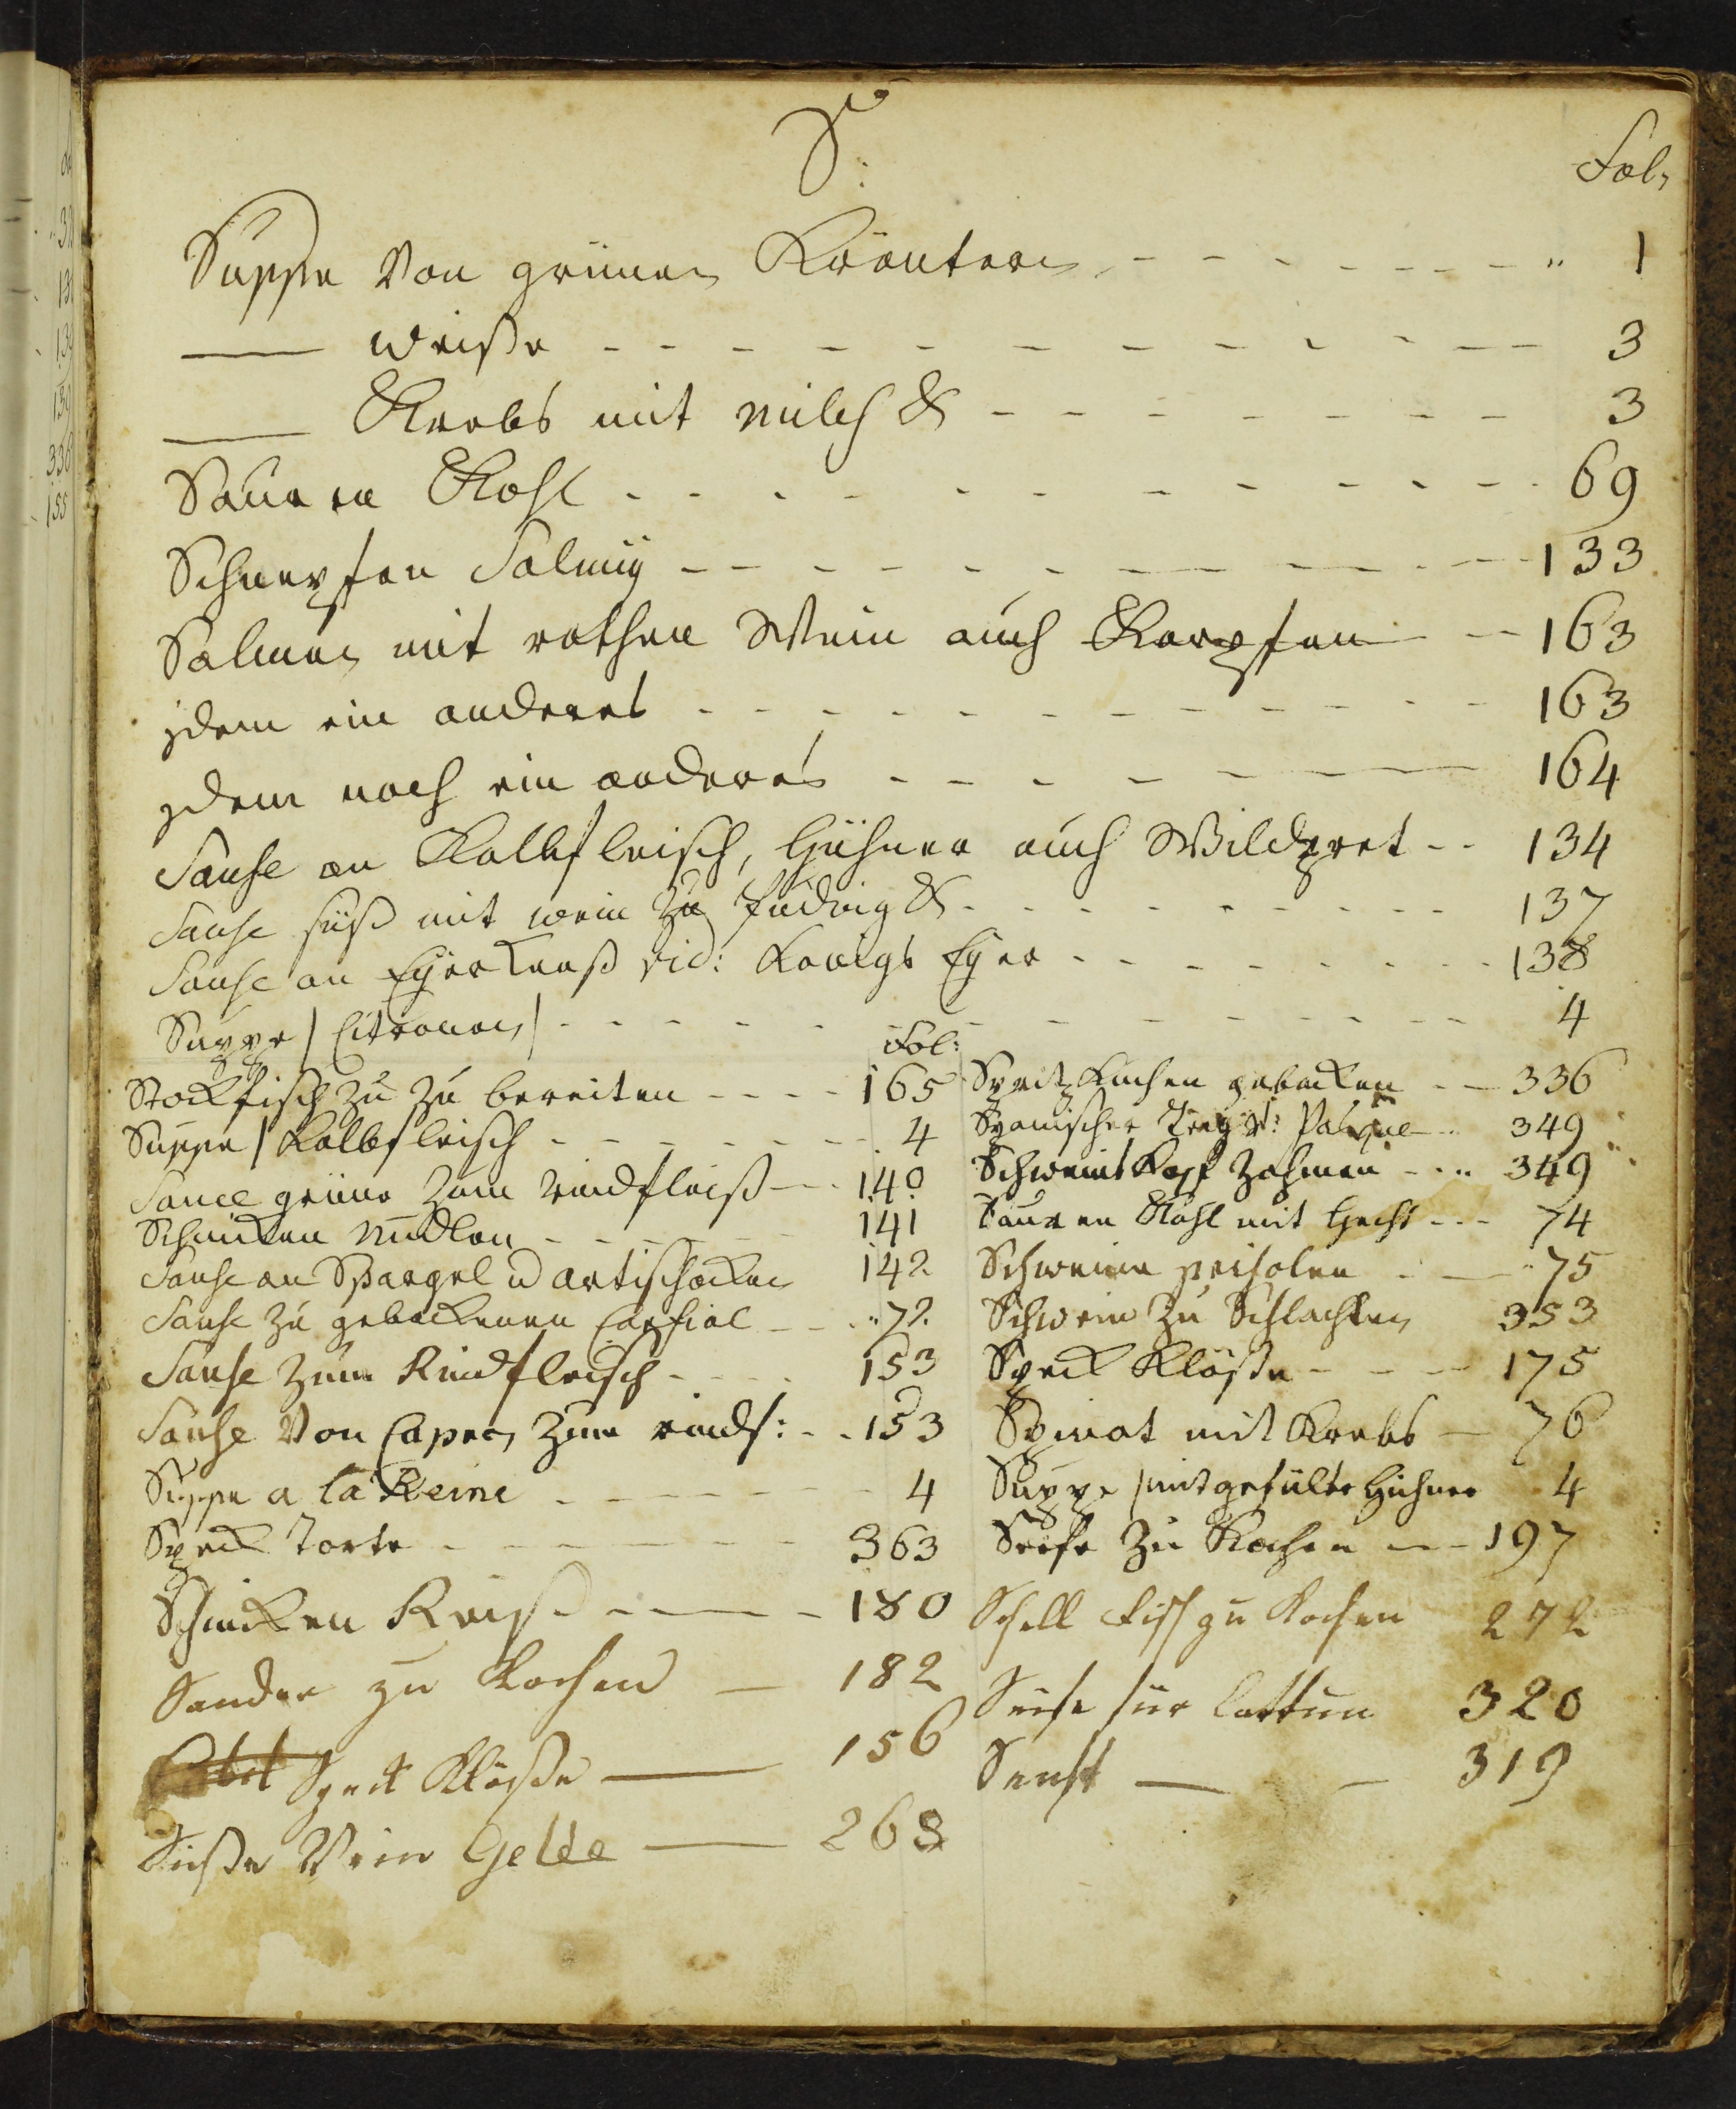 S:
Fol:
Suppe Von grünen Kräutern - - - - - - - - " 1
—— weiße - - - - - - - - - - - 3
—— Krebs mit milch & - - - - - - - 3
Sauren Kohl - - - - - - - - - - - 69
Schnepfen Salmy - - - - - - - - - 133
Salmen mit rothen Wein auch Karpfen - - 163
jdem ein anderes - - - - - - - - - - 163
jdem noch ein anderes - - - - - - 164
Sause an Kalbfleisch, Hühner auch Wildpret - - 134
Sause süß mit wein zu Pudding & - - - - - - - - 137
Sause an Eyerkäeß vid: Königs Eyer - - - - - - - - 138
Suppe / Citronen / - - - - - - - - - - - 4
Fol:
Stockfisch zu zu bereiten - - - - 165
Suppe / Kalbfleisch - - - - - - - 4
Sauce grüne zum rindfleiß - - 140
Schinken Nudlen - - - - - - 141
Sause an Spargel u artischocken 142
Sause zu gebackenen Carfiol - - 72
Sause zum Rindfleisch - - - - 153
Sause Von Capern zum rindf: - - 153
Suppe a la Reine - - - - - - - 4
Speck Torte - - - - - - - 363
Schincken Reiß - - - - 180
Sander zu kochen — 182
Speck Klöße —— 156
Süße Wein Gelee —— 268
Spritz Kuchen gebacken - - 336
Spanischer Teig - 349
Schweins Kopf zahmen - - - 349
Sauren Kohl mit Hecht - - - 74
Schweine - - 75
Schwein zu Schlachten 353
Speck Klöße - - - - 175
Spinat mit Krebs - 76
Suppe / mit gefülte Hühner 4
Seife zu Kochen - - - 197
Schell Fisch zu Kochen 272
Seife für Cattun 320
Senft — — 319